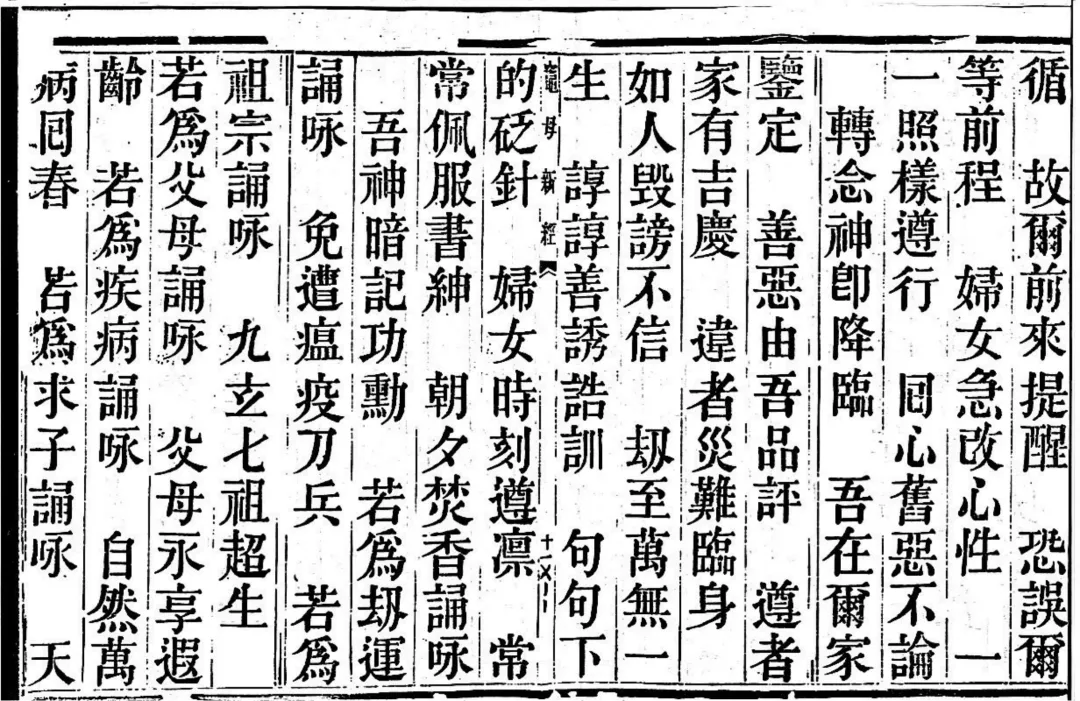 循　故爾前來提醒　恐誤爾
等前程　婦女急改心性　一
一照樣遵行　囘心舊惡不論
轉念神卽降臨　吾在爾家
鑒定　善惡由吾品評　遵者
家有吉慶　違者災難臨身
如人毀謗不信　刼至萬無一
生　諄諄善誘誥訓　句句下
竈母新經
的砭針　婦女時刻遵凛　常
常佩服書紳　朝夕焚香誦咏
吾神暗記功勳　若爲刼運
誦咏　免遭瘟疫刀兵　若爲
祖宗誦咏　九玄七祖超生
若爲父母誦咏　父母永享遐
齡　若爲疾病誦咏　自然萬
病囘春　若爲求子誦咏　天